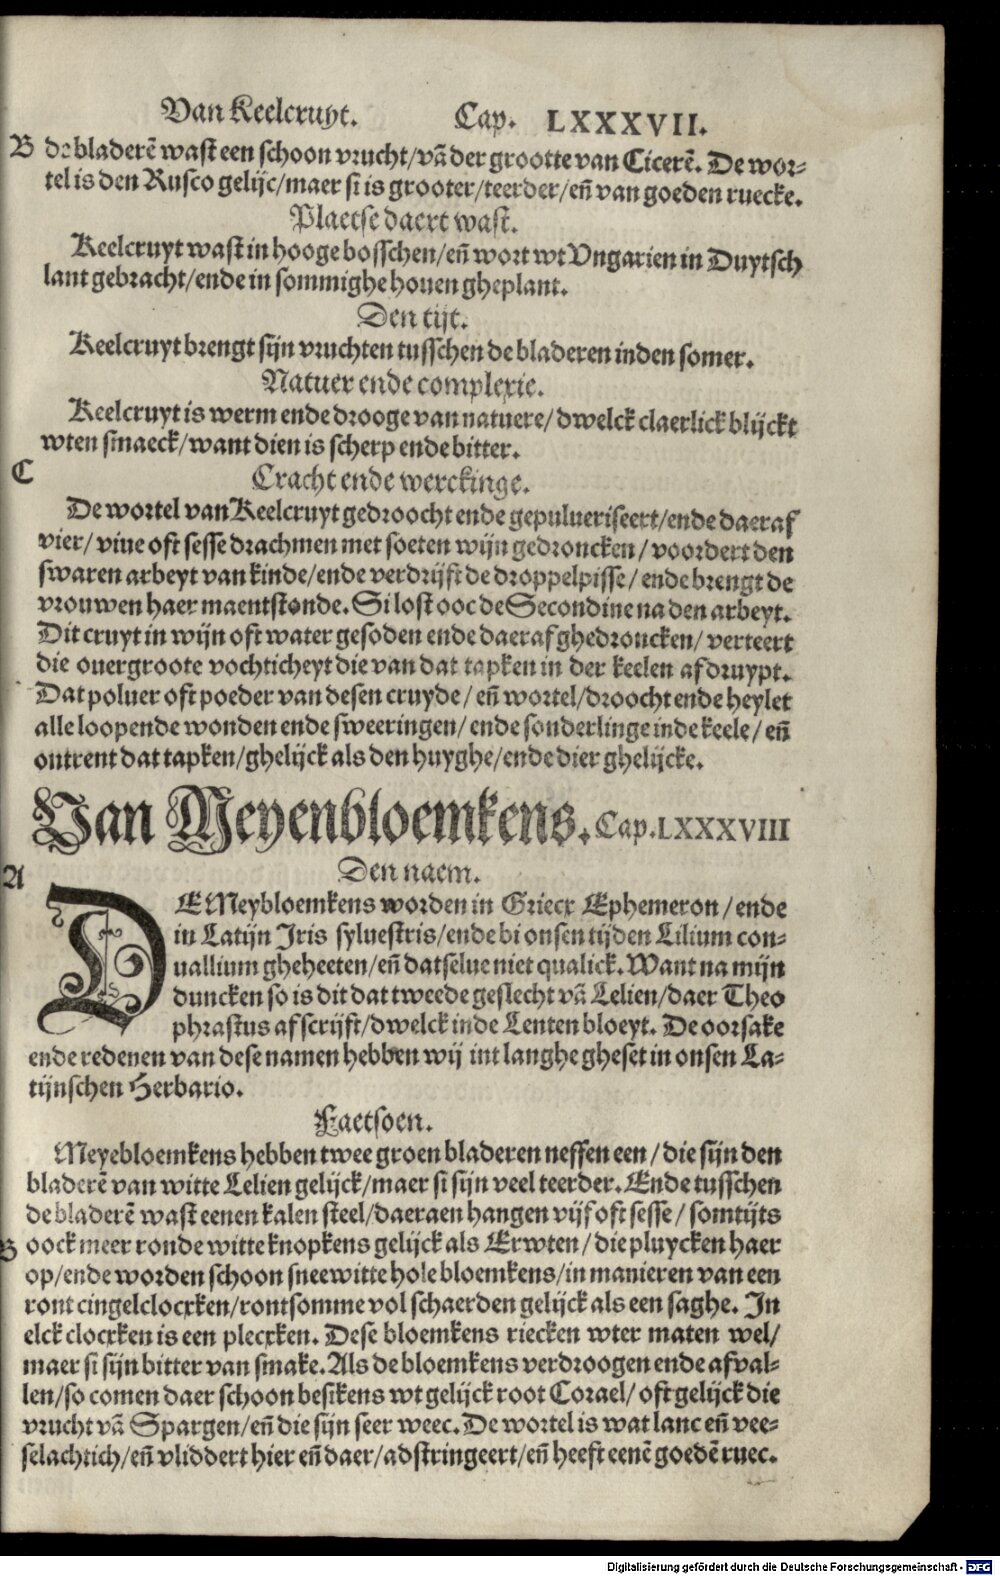 Van Keelcruyt. Cap. LXXXVII.
B de bladerē wast een schoon vrucht/vā der grootte van Cicerē. De wor-
tel is den Rusco gelijc/maer si is grooter/teerder/eñ van goeden ruecke.
Plaetse daert wast.
Keelcruyt wast in hooge bosschen/eñ wort wt Vngarien in Duytsch
lant gebracht/ende in sommighe houen gheplant.
Den tijt.
Keelcruyt brengt sijn vruchten tusschen de bladeren inden somer.
Natuer ende complexie.
Keelcruyt is werm ende drooge van natuere/dwelck claerlick blijckt
wten smaeck/want dien is scherp ende bitter.
C
Cracht ende werckinge.
De wortel van Keelcruyt gedroocht ende gepulueriseert/ende daeraf
vier/viue oft sesse drachmen met soeten wijn gedroncken/voordert den
swaren arbeyt van kinde/ende verdrijft de droppelpisse/ende brengt de
vrouwen haer maentstonde. Si lost ooc de Secondine na den arbeyt.
Dit cruyt in wijn oft water gesoden ende daeraf ghedroncken/verteert
die ouergroote vochticheyt die van dat tapken in der keelen afdruypt.
Dat poluer oft poeder van desen cruyde/eñ wortel/droocht ende heylet
alle loopende wonden ende sweeringen/ende sonderlinge inde keele/eñ
ontrent dat tapken/ghelijck als den huyghe/ende dier ghelijcke.
Van Meyenbloemkens. Cap. LXXXVIII
Den naem.
A
DE Meybloemkens worden in Griecx Ephemeron/ende
in Latijn Iris syluestris/ende bi onsen tijden Lilium con-
uallium gheheeten/eñ datselue niet qualick. Want na mijn
duncken so is dit dat tweede geslecht vā Lelien/daer Theo
phrastus af scrijft/dwelck inde Lenten bloeyt. De oorsake
ende redenen van dese namen hebben wij int langhe gheset in onsen La-
tijnschen Herbario.
Faetsoen.
Meyebloemkens hebben twee groen bladeren neffen een/die sijn den
bladerē van witte Lelien gelijck/maer si sijn veel teerder. Ende tusschen
de bladerē wast eenen kalen steel/daeraen hangen vijf oft sesse/somtijts
B oock meer ronde witte knopkens gelijck als Erwten/die pluycken haer
op/ende worden schoon sneewitte hole bloemkens/in manieren van een
ront cingelclocxken/rontsomme vol schaerden gelijck als een saghe. In
elck clocxken is een plecxken. Dese bloemkens riecken wter maten wel/
maer si sijn bitter van smake. Als de bloemkens verdroogen ende afval-
len/so comen daer schoon besikens wt gelijck root Corael/oft gelijck die
vrucht vā Spargen/eñ die sijn seer weec. De wortel is wat lanc eñ vee-
selachtich/eñ vliddert hier eñ daer/adstringeert/eñ heeft eenē goedē ruec.
Digitalisierung gefördert durch die Deutsche Forschungsgemeinschaft - DFG